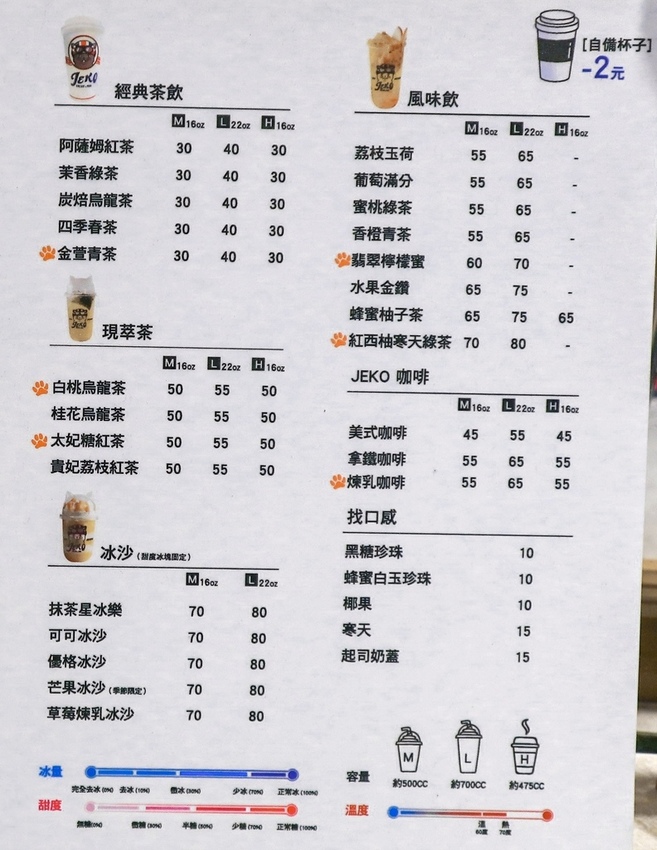 JEKO
經典茶飲
M16oz L22oz H16oz
阿薩姆紅茶 30 40 30
茉香綠茶 30 40 30
炭焙烏龍茶 30 40 30
四季春茶 30 40 30
金萱青茶 30 40 30
現萃茶
M16oz L22oz H16oz
白桃烏龍茶 50 55 50
桂花烏龍茶 50 55 50
太妃糖紅茶 50 55 50
貴妃荔枝紅茶 50 55 50
冰沙(甜度冰塊固定)
M16oz L22oz
抹茶星冰樂 70 80
可可冰沙 70 80
優格冰沙 70 80
芒果冰沙(季節限定) 70 80
草莓煉乳冰沙 70 80
冰量
完全去冰(0%) 去冰(10%) 微冰(30%) 少冰(70%) 正常冰(100%)
甜度
無糖(0%) 微糖(30%) 半糖(50%) 少糖(70%) 正常糖(100%)
[自備杯子]
-2元
風味飲
M16oz L22oz H16oz
荔枝玉荷 55 65 -
葡萄滿分 55 65 -
蜜桃綠茶 55 65 -
香橙青茶 55 65 -
翡翠檸檬蜜 60 70 -
水果金鑽 65 75 -
蜂蜜柚子茶 65 75 65
紅西柚寒天綠茶 70 80 -
JEKO 咖啡
M16oz L22oz H16oz
美式咖啡 45 55 45
拿鐵咖啡 55 65 55
煉乳咖啡 55 65 55
找口感
黑糖珍珠 10
蜂蜜白玉珍珠 10
椰果 10
寒天 15
起司奶蓋 15
M L H
容量 約500CC 約700CC 約475CC
溫度
溫 熱
60度 70度